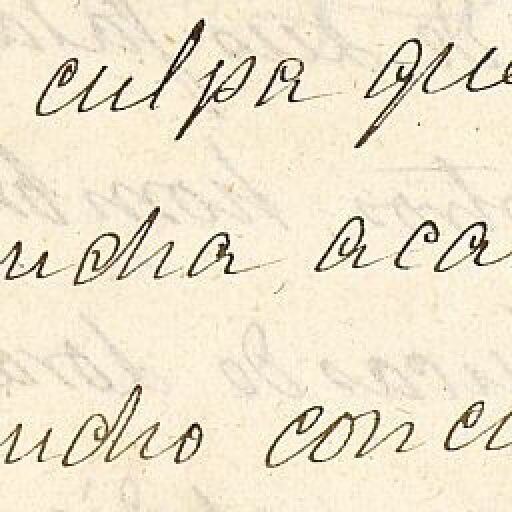 culpa que
ucha, aca
ucho conc